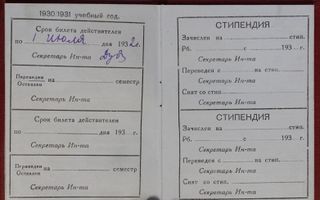 1930/1931 учебный год.
Срок билета действителен
по 1 Июля дня 1932 г.
Секретарь Ин-та
Переведен
Оставлен на семестр
Секретарь Ин-та
Срок билета действителен
по дня 193 г.
Секретарь Ин-та
Переведен
Оставлен на семестр
Секретарь Ин-та
СТИПЕНДИЯ
Зачислен на стип.
Рб. с 193 г.
Секретарь Ин-та
Переведен с на стип.
Секретарь Ин-та
Снят со стип.
Секретарь Ин-та
СТИПЕНДИЯ
Зачислен на стип.
Рб. с 193 г.
Секретарь Ин-та
Переведен с на стип.
Секретарь Ин-та
Снят со стип.
Секретарь Ин-та